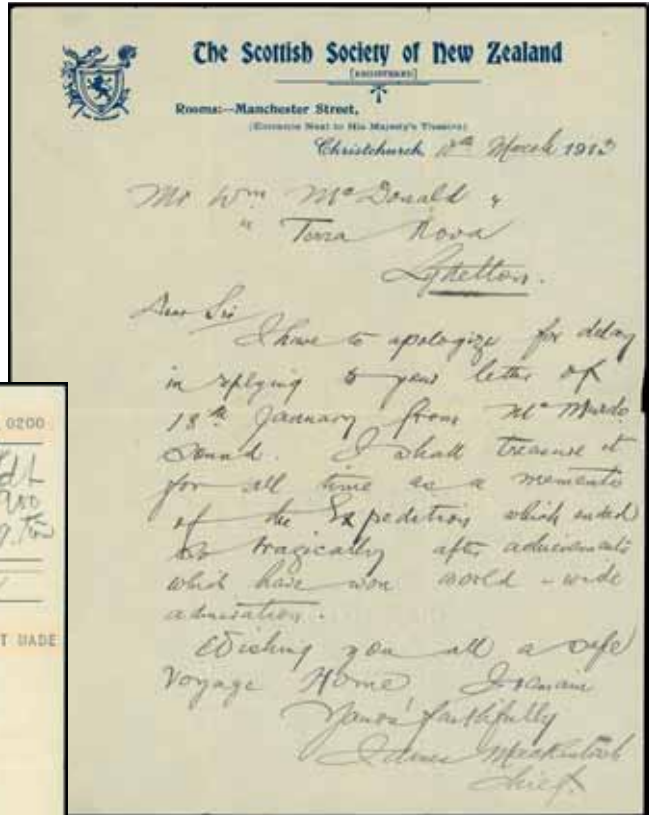 The Scottish Society of New Zealand
[REGISTERED]
Rooms:—Manchester Street,
(Entrance Next to His Majesty's Theatre)
Christchurch March 1913
Mr Wm McDonald
" Terra Nova
Lyttelton.
Dear Sir
I have to apologize for delay
in replying to your letter of
18th January from McMurdo
Sound. I shall treasure it
for all time as a memento
of the Expedition which ended
so tragically after achievements
which have won world-wide
admiration.
Wishing you all a safe
Voyage Home, I remain
Yours faithfully
James Mackintosh
Chief.
0200
T MADE